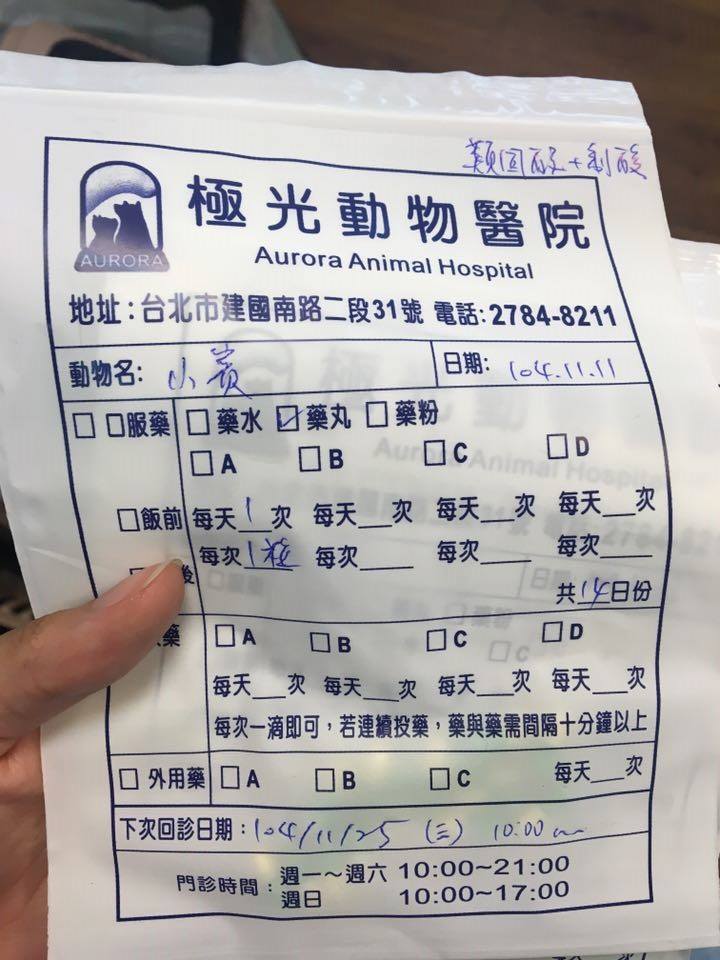 類固醇+制酸
AURORA
極光動物醫院
Aurora Animal Hospital
地址:台北市建國南路二段31號 電話:2784-8211
動物名: 小賓 日期: 104.11.11
□ 口服藥 □ 藥水 ☑ 藥丸 □ 藥粉
□ A □ B □ C □ D
□ 飯前 每天 1 次 每天___次 每天___次 每天___次
後 每次 1粒 每次____ 每次____ 每次____
共 14 日份
藥 □ A □ B □ C □ D
每天___次 每天___次 每天___次 每天___次
每次一滴即可,若連續投藥,藥與藥需間隔十分鐘以上
□ 外用藥 □ A □ B □ C 每天___次
下次回診日期: 104/11/25 (三) 10:00 am
門診時間: 週一~週六 10:00~21:00
週日 10:00~17:00